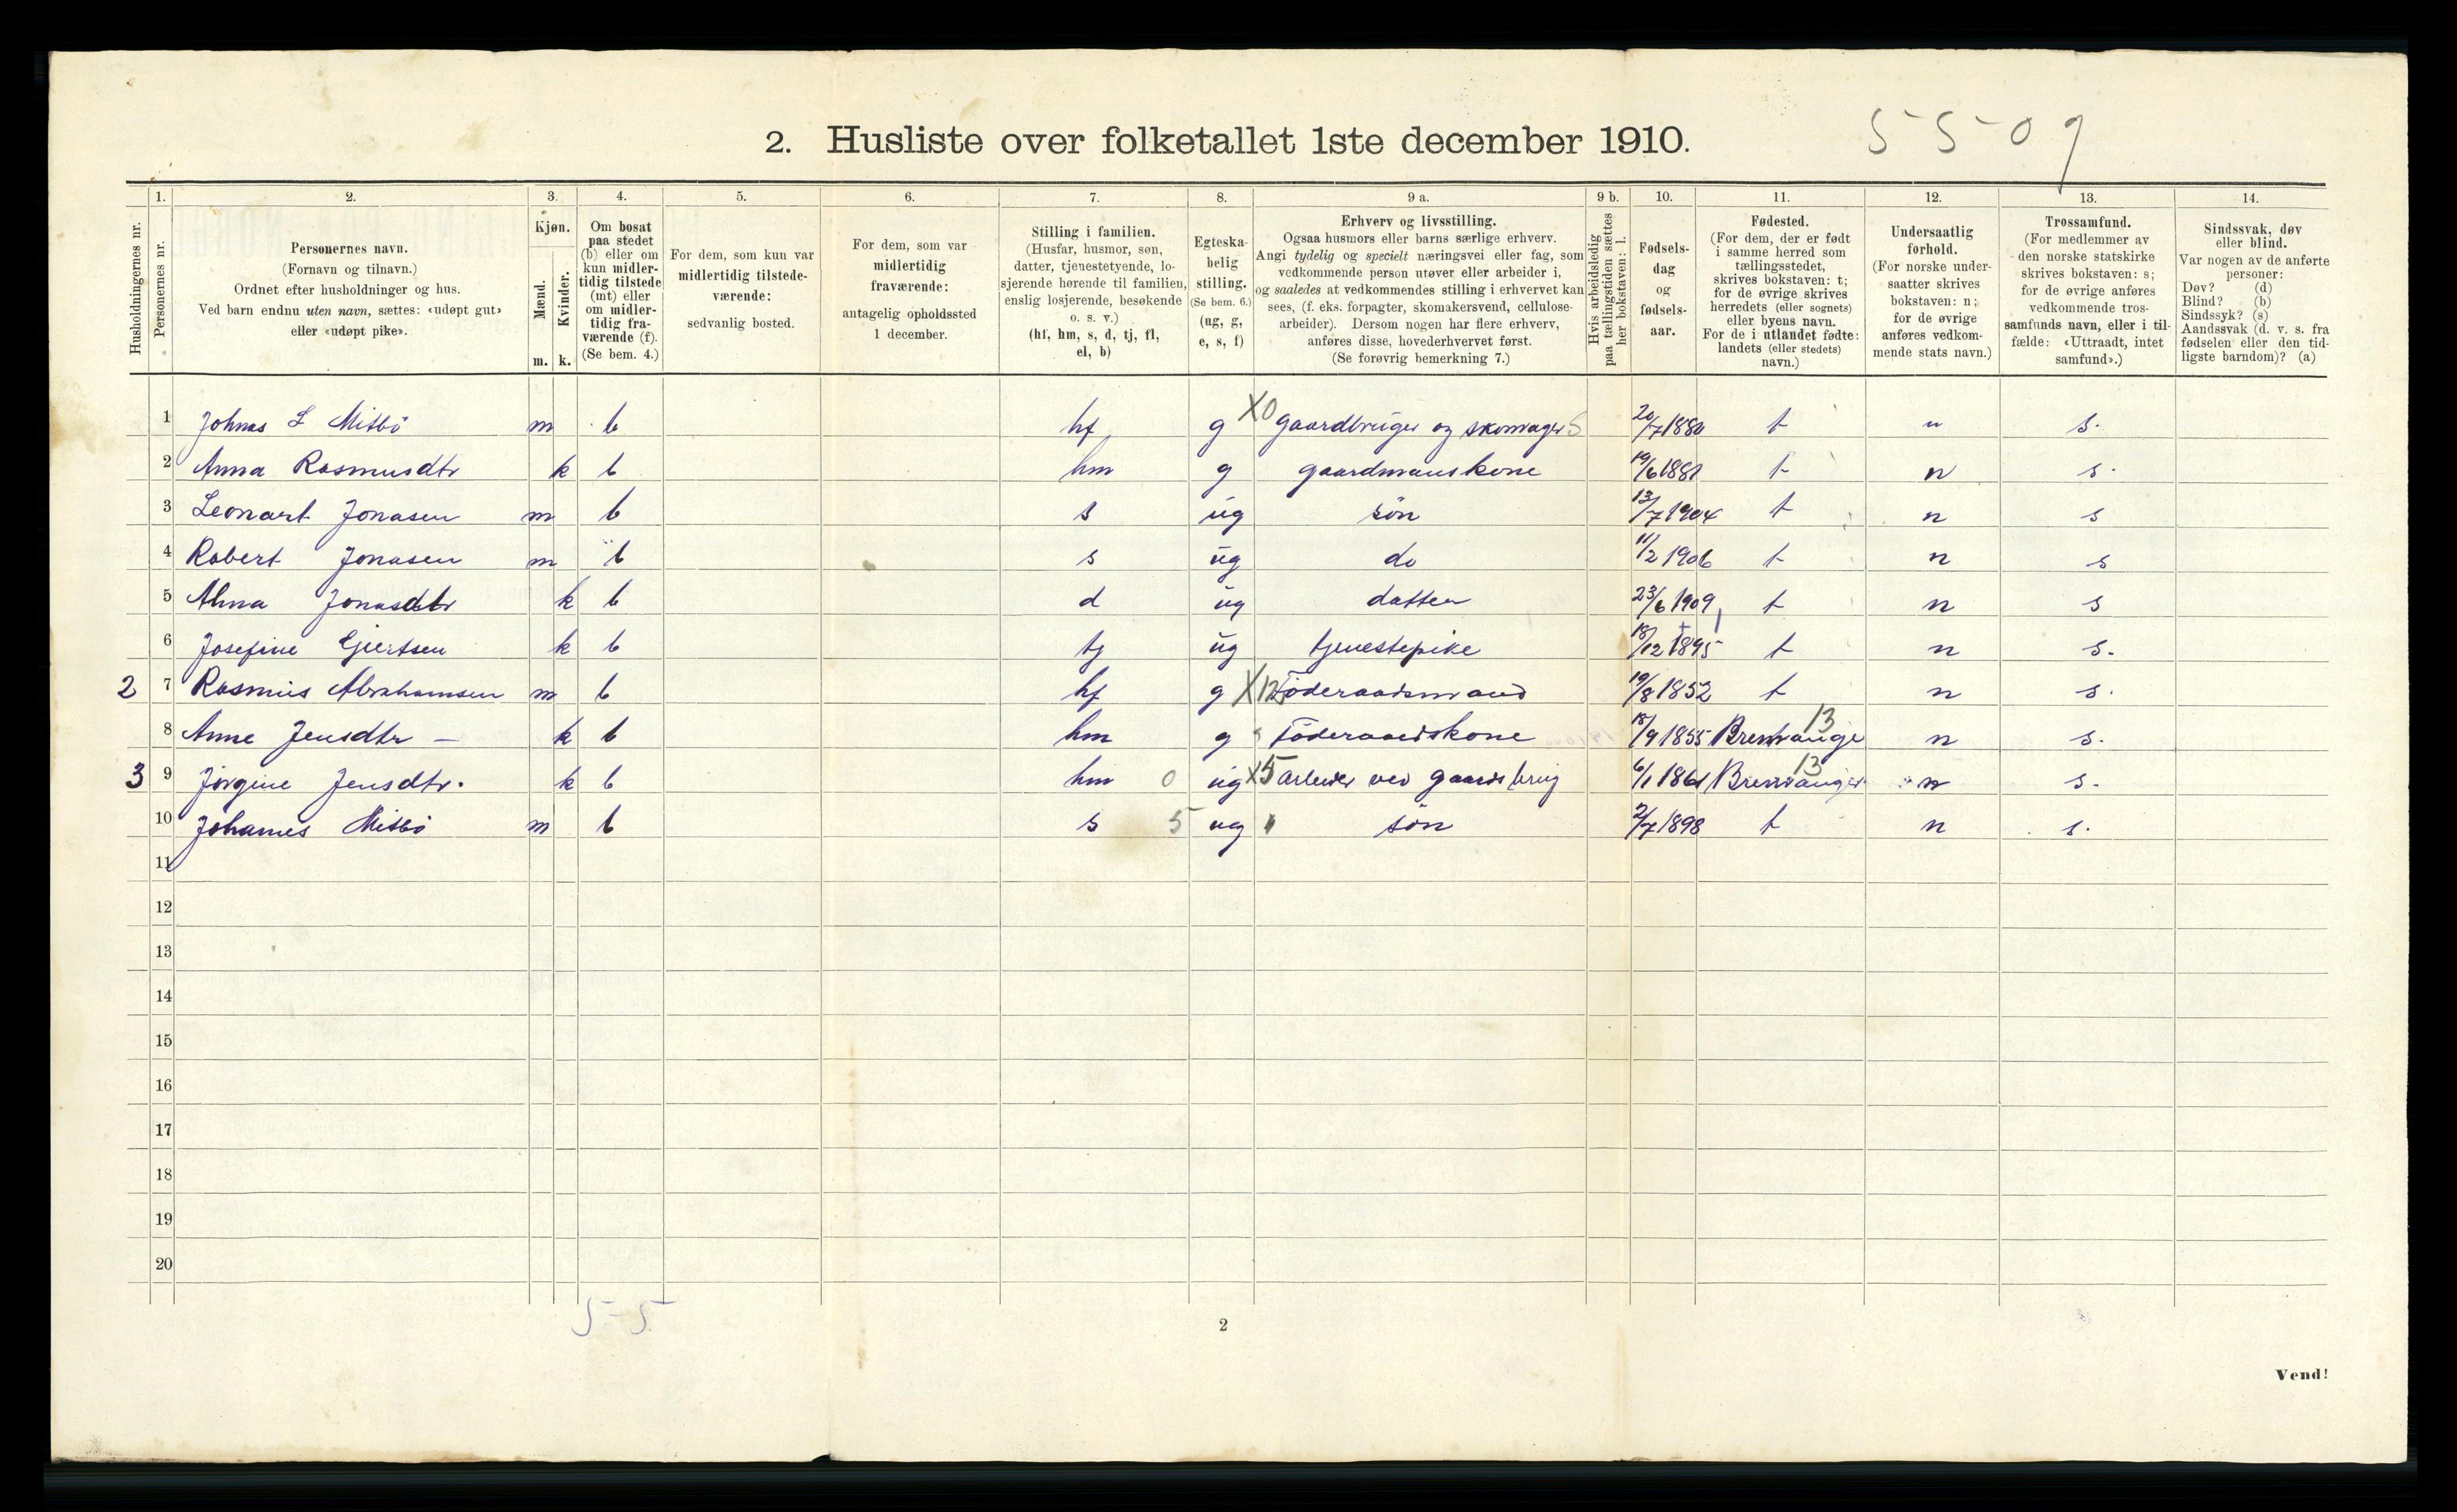 2. Husliste over folketallet 1ste december 1910.
5-5-09
Husholdningernes nr.
1.
Personernes nr.
2.
Personernes navn.
(Fornavn og tilnavn.)
Ordnet efter husholdninger og hus.
Ved barn endnu uten navn, sættes: «udøpt gut»
eller «udøpt pike».
3.
Kjøn.
Mænd.
Kvinder.
m. k.
4.
Om bosat
paa stedet
(b) eller om
kun midler-
tidig tilstede
(mt) eller
om midler-
tidig fra-
værende (f).
(Se bem. 4.)
5.
For dem, som kun var
midlertidig tilstede-
værende:
sedvanlig bosted.
6.
For dem, som var
midlertidig
fraværende:
antagelig opholdssted
1 december.
7.
Stilling i familien.
(Husfar, husmor, søn,
datter, tjenestetyende, lo-
sjerende hørende til familien,
enslig losjerende, besøkende
o. s. v.)
(hf, hm, s, d, tj, fl,
el, b)
8.
Egteska-
belig
stilling.
(Se bem. 6.)
(ug, g,
e, s, f)
9 a.
Erhverv og livsstilling.
Ogsaa husmors eller barns særlige erhverv.
Angi tydelig og specielt næringsvei eller fag, som
vedkommende person utøver eller arbeider i,
og saaledes at vedkommendes stilling i erhvervet kan
sees, (f. eks. forpagter, skomakersvend, cellulose-
arbeider). Dersom nogen har flere erhverv,
anføres disse, hovederhvervet først.
(Se forøvrig bemerkning 7.)
9 b.
Hvis arbeidsledig
paa tællingstiden sættes
her bokstaven: l.
10.
Fødsels-
dag
og
fødsels-
aar.
11.
Fødested.
(For dem, der er født
i samme herred som
tællingsstedet,
skrives bokstaven: t;
for de øvrige skrives
herredets (eller sognets)
eller byens navn.
For de i utlandet fødte:
landets (eller stedets)
navn.)
12.
Undersaatlig
forhold.
(For norske under-
saatter skrives
bokstaven: n;
for de øvrige
anføres vedkom-
mende stats navn.)
13.
Trossamfund.
(For medlemmer av
den norske statskirke
skrives bokstaven: s;
for de øvrige anføres
vedkommende tros-
samfunds navn, eller i til-
fælde: «Uttraadt, intet
samfund».)
14.
Sindssvak, døv
eller blind.
Var nogen av de anførte
personer:
Døv? (d)
Blind? (b)
Sindssyk? (s)
Aandssvak (d. v. s. fra
fødselen eller den tid-
ligste barndom)? (a)
1 Johnas L Misbö m b hf g X0 gaardbruger og skomager 5 20/7 1880 t n s.
2 Anna Rasmusdtr k b hm g gaardmanskone 19/6 1881 t n s.
3 Leonart Jonasen m b s ug sön 13/7 1904 t n s
4 Robert Jonasen m b s ug do 11/2 1906 t n s
5 Alma Jonasdtr k b d ug datter 23/6 1909 t n s
6 Josefine Gjertsen k b tj ug tjenestepike 18/12 1895 t n s.
2 7 Rasmus Abrahamsen m b hf g X12 Föderaadsmand 19/8 1852 t n s.
8 Anne Jensdtr - k b hm g Föderaadskone 18/9 1855 Bremanger 13 n s.
3 9 Jörgine Jensdtr. k b hm 0 ug X5 Arbeider ved gaardsbrug 6/1 1861 Bremanger 13 n s.
10 Johannes Misbö m b s 5 ug sön 2/7 1898 t n s.
11
12
13
14
15
16
17
18
19
20
5-5
2
Vend!